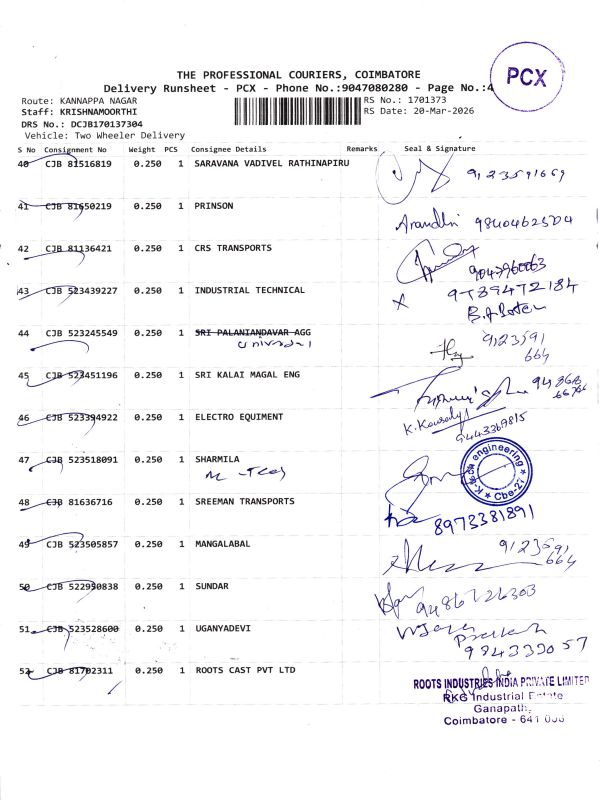 THE PROFESSIONAL COURIERS, COIMBATORE
PCX
Delivery Runsheet - PCX - Phone No.:9047080280 - Page No.:4
Route: KANNAPPA NAGAR
RS No.: 1701373
Staff: KRISHNAMOORTHI
RS Date: 20-Mar-2026
DRS No.: DCJB170137304
Vehicle: Two Wheeler Delivery
S No Consignment No Weight PCS Consignee Details Remarks Seal & Signature
40 CJB 81516819 0.250 1 SARAVANA VADIVEL RATHINAPIRU
41 CJB 81650219 0.250 1 PRINSON
42 CJB 81136421 0.250 1 CRS TRANSPORTS
43 CJB 523439227 0.250 1 INDUSTRIAL TECHNICAL
9789472184
44 CJB 523245549 0.250 1 SRI PALANIANDAVAR AGG
universal
9123591
664
45 CJB 523451196 0.250 1 SRI KALAI MAGAL ENG
46 CJB 523394922 0.250 1 ELECTRO EQUIMENT
9443369815
47 CJB 523518091 0.250 1 SHARMILA
engineering
Cbe-27
48 CJB 81636716 0.250 1 SREEMAN TRANSPORTS
8973381891
49 CJB 523505857 0.250 1 MANGALABAL
9123591
664
50 CJB 522950838 0.250 1 SUNDAR
9486726303
51 CJB 523528600 0.250 1 UGANYADEVI
52 CJB 81702311 0.250 1 ROOTS CAST PVT LTD
ROOTS INDUSTRIES INDIA PRIVATE LIMITED
RKG Industrial Estate
Ganapathy,
Coimbatore - 641 006